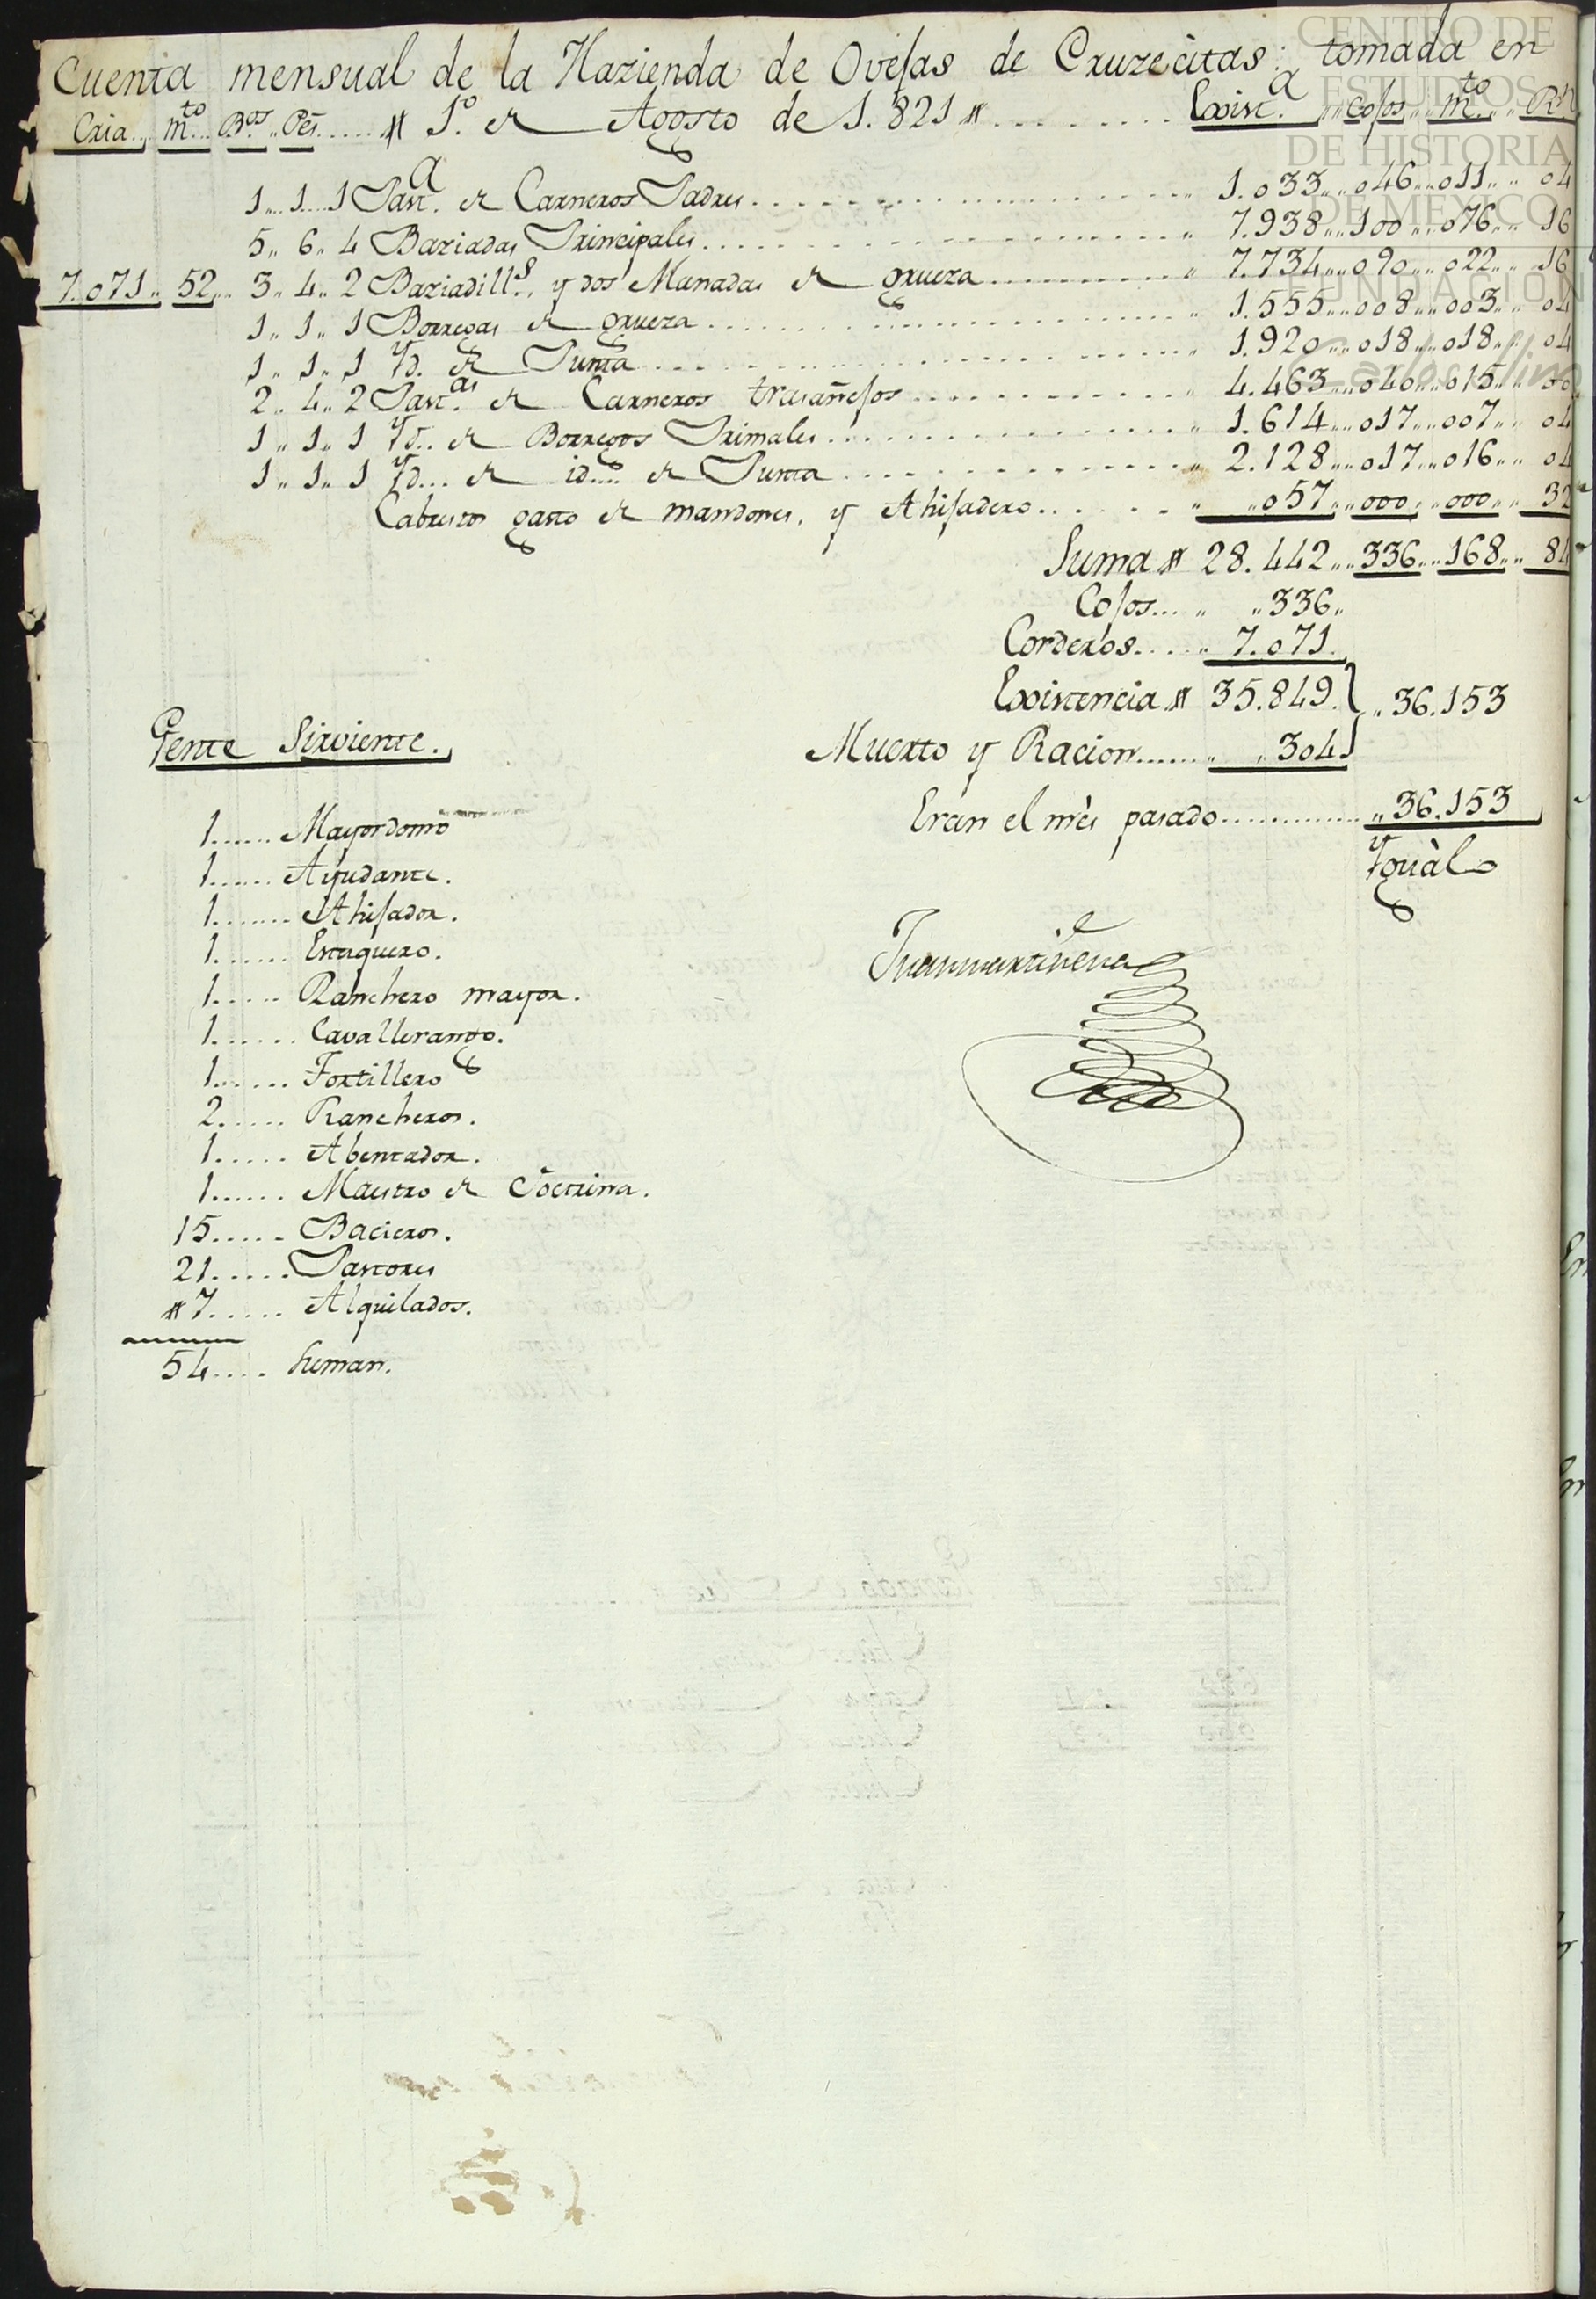 Cuenta mensual de la Hazienda de Ovejas de Cruzecitas: tomada en
Cria,, mto,, Bos,, Pes..... # 1º de Agosto de 1.821 # ........ Exista,, cojos,, mto,, Rn
1,, 1,, 1 Parta. de Carneros Padres ........ 1.033,, 046,, 011,, 04
5,, 6,, 4 Baziadas Principales ........ 7.938,, 100,, 076,, 16
7.071,, 52,, 3,, 4,, 2 Baziadills. y dos Manadas de grueza ........ 7.734,, 090,, 022,, 16
1,, 1,, 1 Borregas de grueza ........ 1.555,, 008,, 003,, 04
1,, 1,, 1 Yd. de Punta ........ 1.920,, 018,, 018,, 04
2,, 4,, 2 Partas. de Carneros trasañejos ........ 4.463,, 040,, 015,, 00
1,, 1,, 1 Yd.. de Borregos Primales ........ 1.614,, 017,, 007,, 04
1,, 1,, 1 Yd... de id.... de Punta ........ 2.128,, 017,, 016,, 04
Cabrestos gasto de mandones, y Ahijadero ...... ,,057,, 000,, 000,, 32
Suma # 28.442,, 336,, 168,, 84
Cojos... ,, 336,,
Corderos..... 7.071.
Existencia # 35.849. } ,, 36.153
Muerto y Racion....... 304.
Eran el mès pasado ............ ,, 36.153
Yguàl
Gente Sirviente.
1...... Mayordomo
1...... Ayudante.
1....... Ahijador.
1...... Estaquero.
1..... Ranchero mayor.
1...... Cavallerango.
1...... Tortillero
2..... Rancheros.
1..... Abentador.
1...... Maestro de Doctrina.
15..... Bacieros.
21..... Pastores
# 7..... Alquilados.
54.... suman.
Juan
CENTRO DE
ESTUDIOS
DE HISTORIA
DE MEXICO
FUNDACIÓN
Carlos Slim